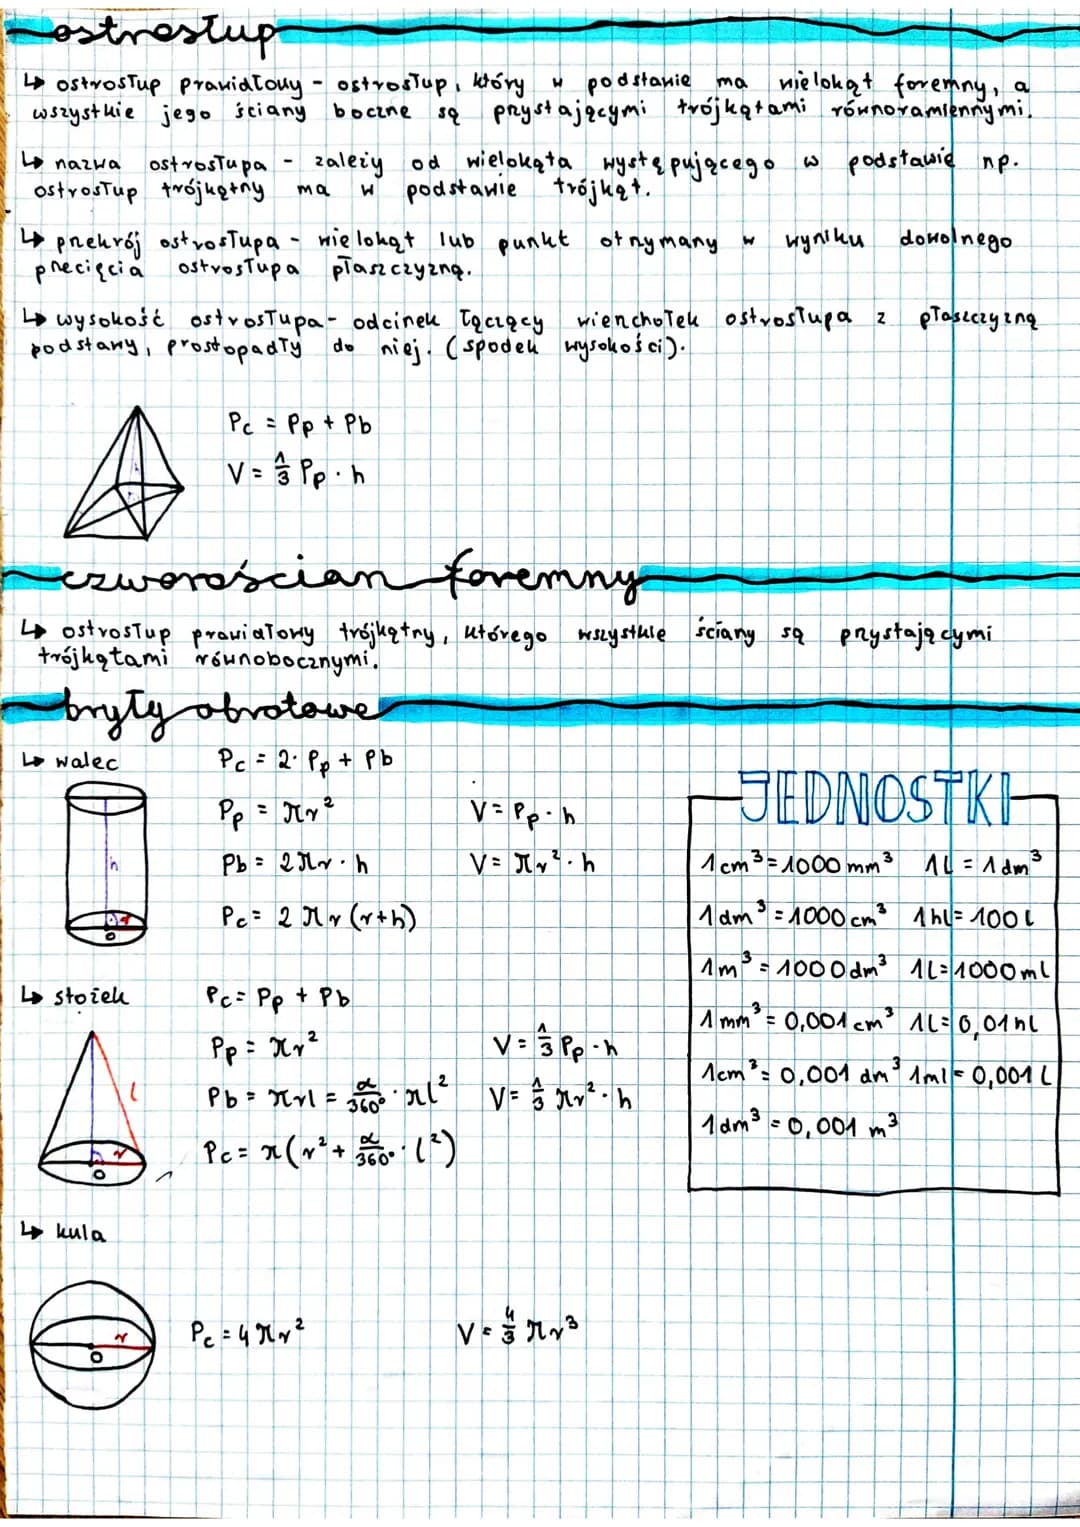 ostrosłup
↳ ostrosłup prawidłowy - ostrosłup, który w podstawie ma wielokąt foremny, a
wszystkie jego ściany boczne są przystającymi trójkątami równoramiennymi.
↳ nazwa ostrosłupa - zależy od wielokąta występującego w podstawie np.
ostrosłup trójkątny ma w podstawie trójkąt.
↳ przekrój ostrosłupa - wielokąt lub punkt otrzymany w wyniku dowolnego
przecięcia ostrosłupa płaszczyzną.
↳ wysokość ostrosłupa - odcinek łączący wierzchołek ostrosłupa z płaszczyzną
podstawy, prostopadły do niej. (spodek wysokości).
Pc = Pp + Pb
V = 1/3 Pp · h
czworościan foremny
↳ ostrosłup prawidłowy trójkątny, którego wszystkie ściany są przystającymi
trójkątami równobocznymi.
bryły obrotowe
↳ walec
Pc = 2 · Pp + Pb
Pp = πr²
V = Pp · h
Pb = 2πr · h
V = πr² · h
Pc = 2πr (r+h)
h
r
O
↳ stożek
Pc = Pp + Pb
Pp = πr²
V = 1/3 Pp · h
Pb = πrl = α/360° · πl²
V = 1/3 πr² · h
Pc = π(r² + α/360° · l²)
l
r
O
↳ kula
r
O
Pc = 4πr²
V = 4/3 πr³
JEDNOSTKI
1cm³ = 1000 mm³ 1l = 1dm³
1dm³ = 1000 cm³ 1hl = 100l
1m³ = 1000dm³ 1l = 1000ml
1mm³ = 0,001 cm³ 1l = 0,01hl
1cm³ = 0,001 dm³ 1ml = 0,001 l
1dm³ = 0,001 m³